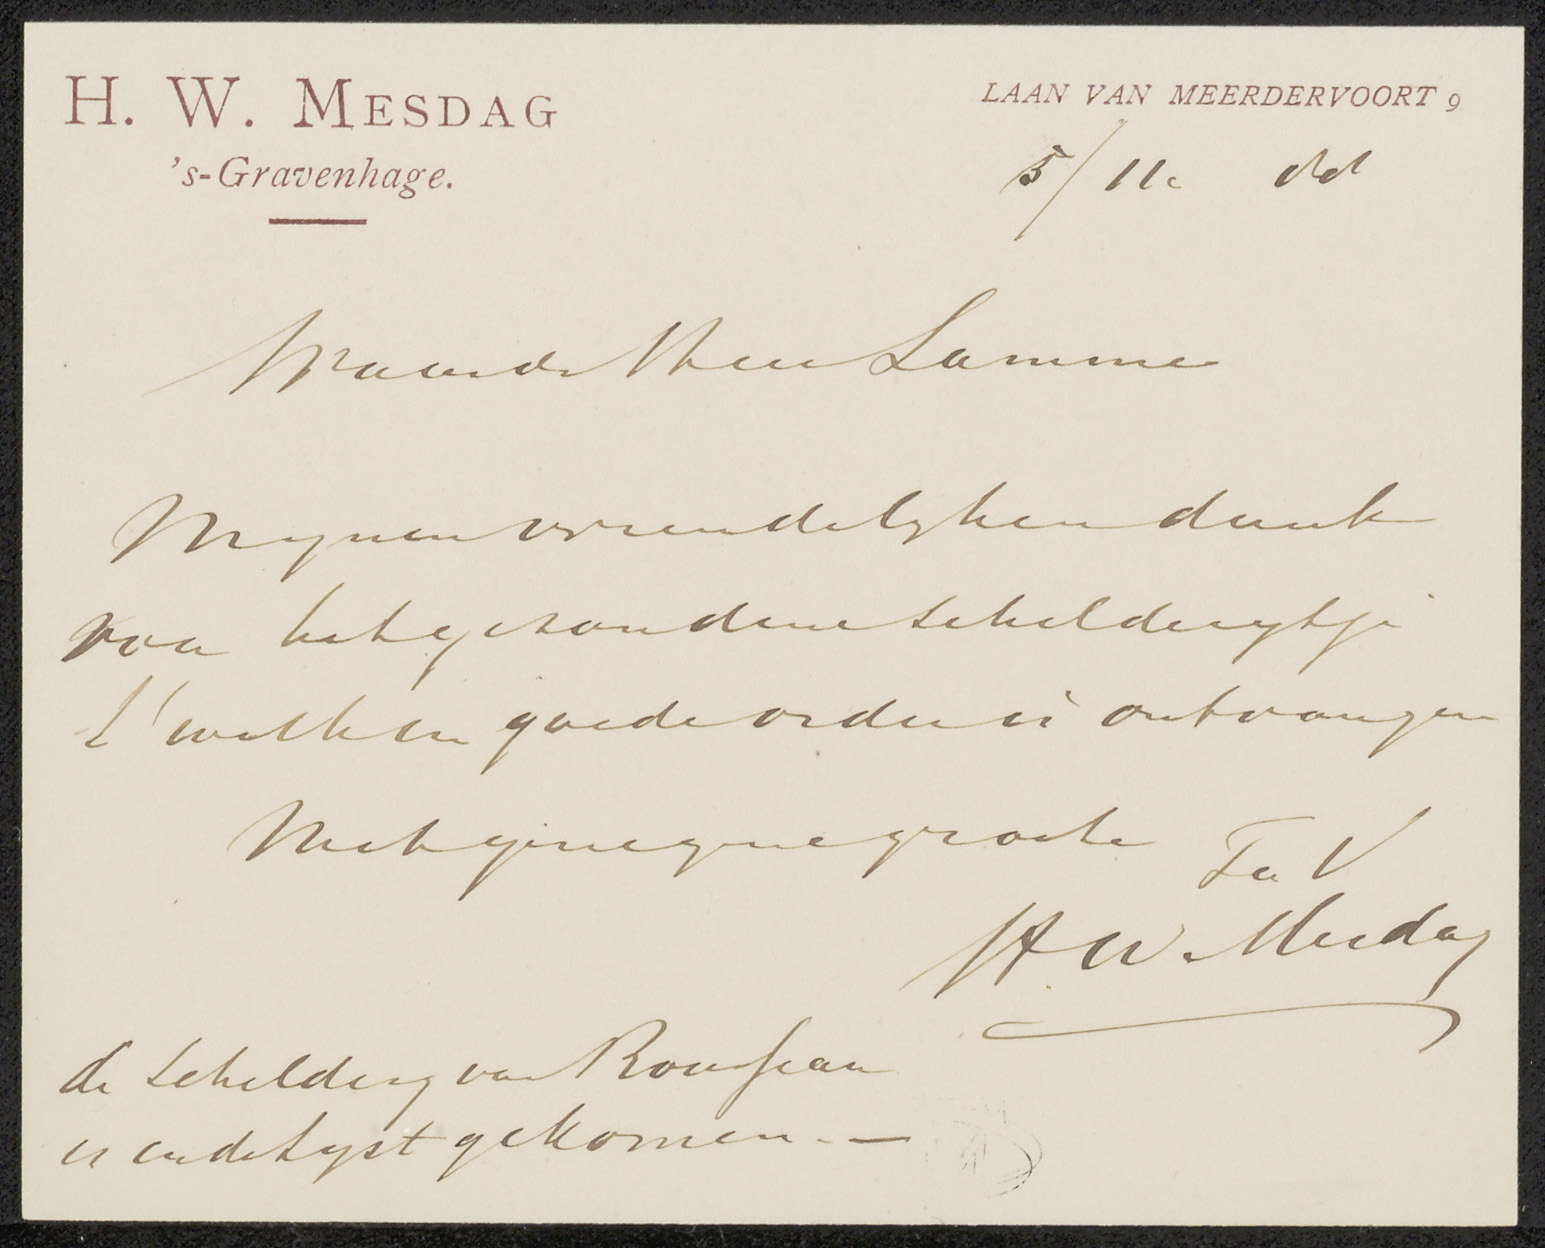 H. W. MESDAG
LAAN VAN MEERDERVOORT 9
's-Gravenhage.
5/11.
Waarde Heer Lamme
Mynen vriendelyken dank
voor het gezondene schilderytje
t'welk in goede orde is ontvangen
Met genegene groete
TaV
H W. Mesdag
de schildery van Rousseau
is in de lyst gekomen. —